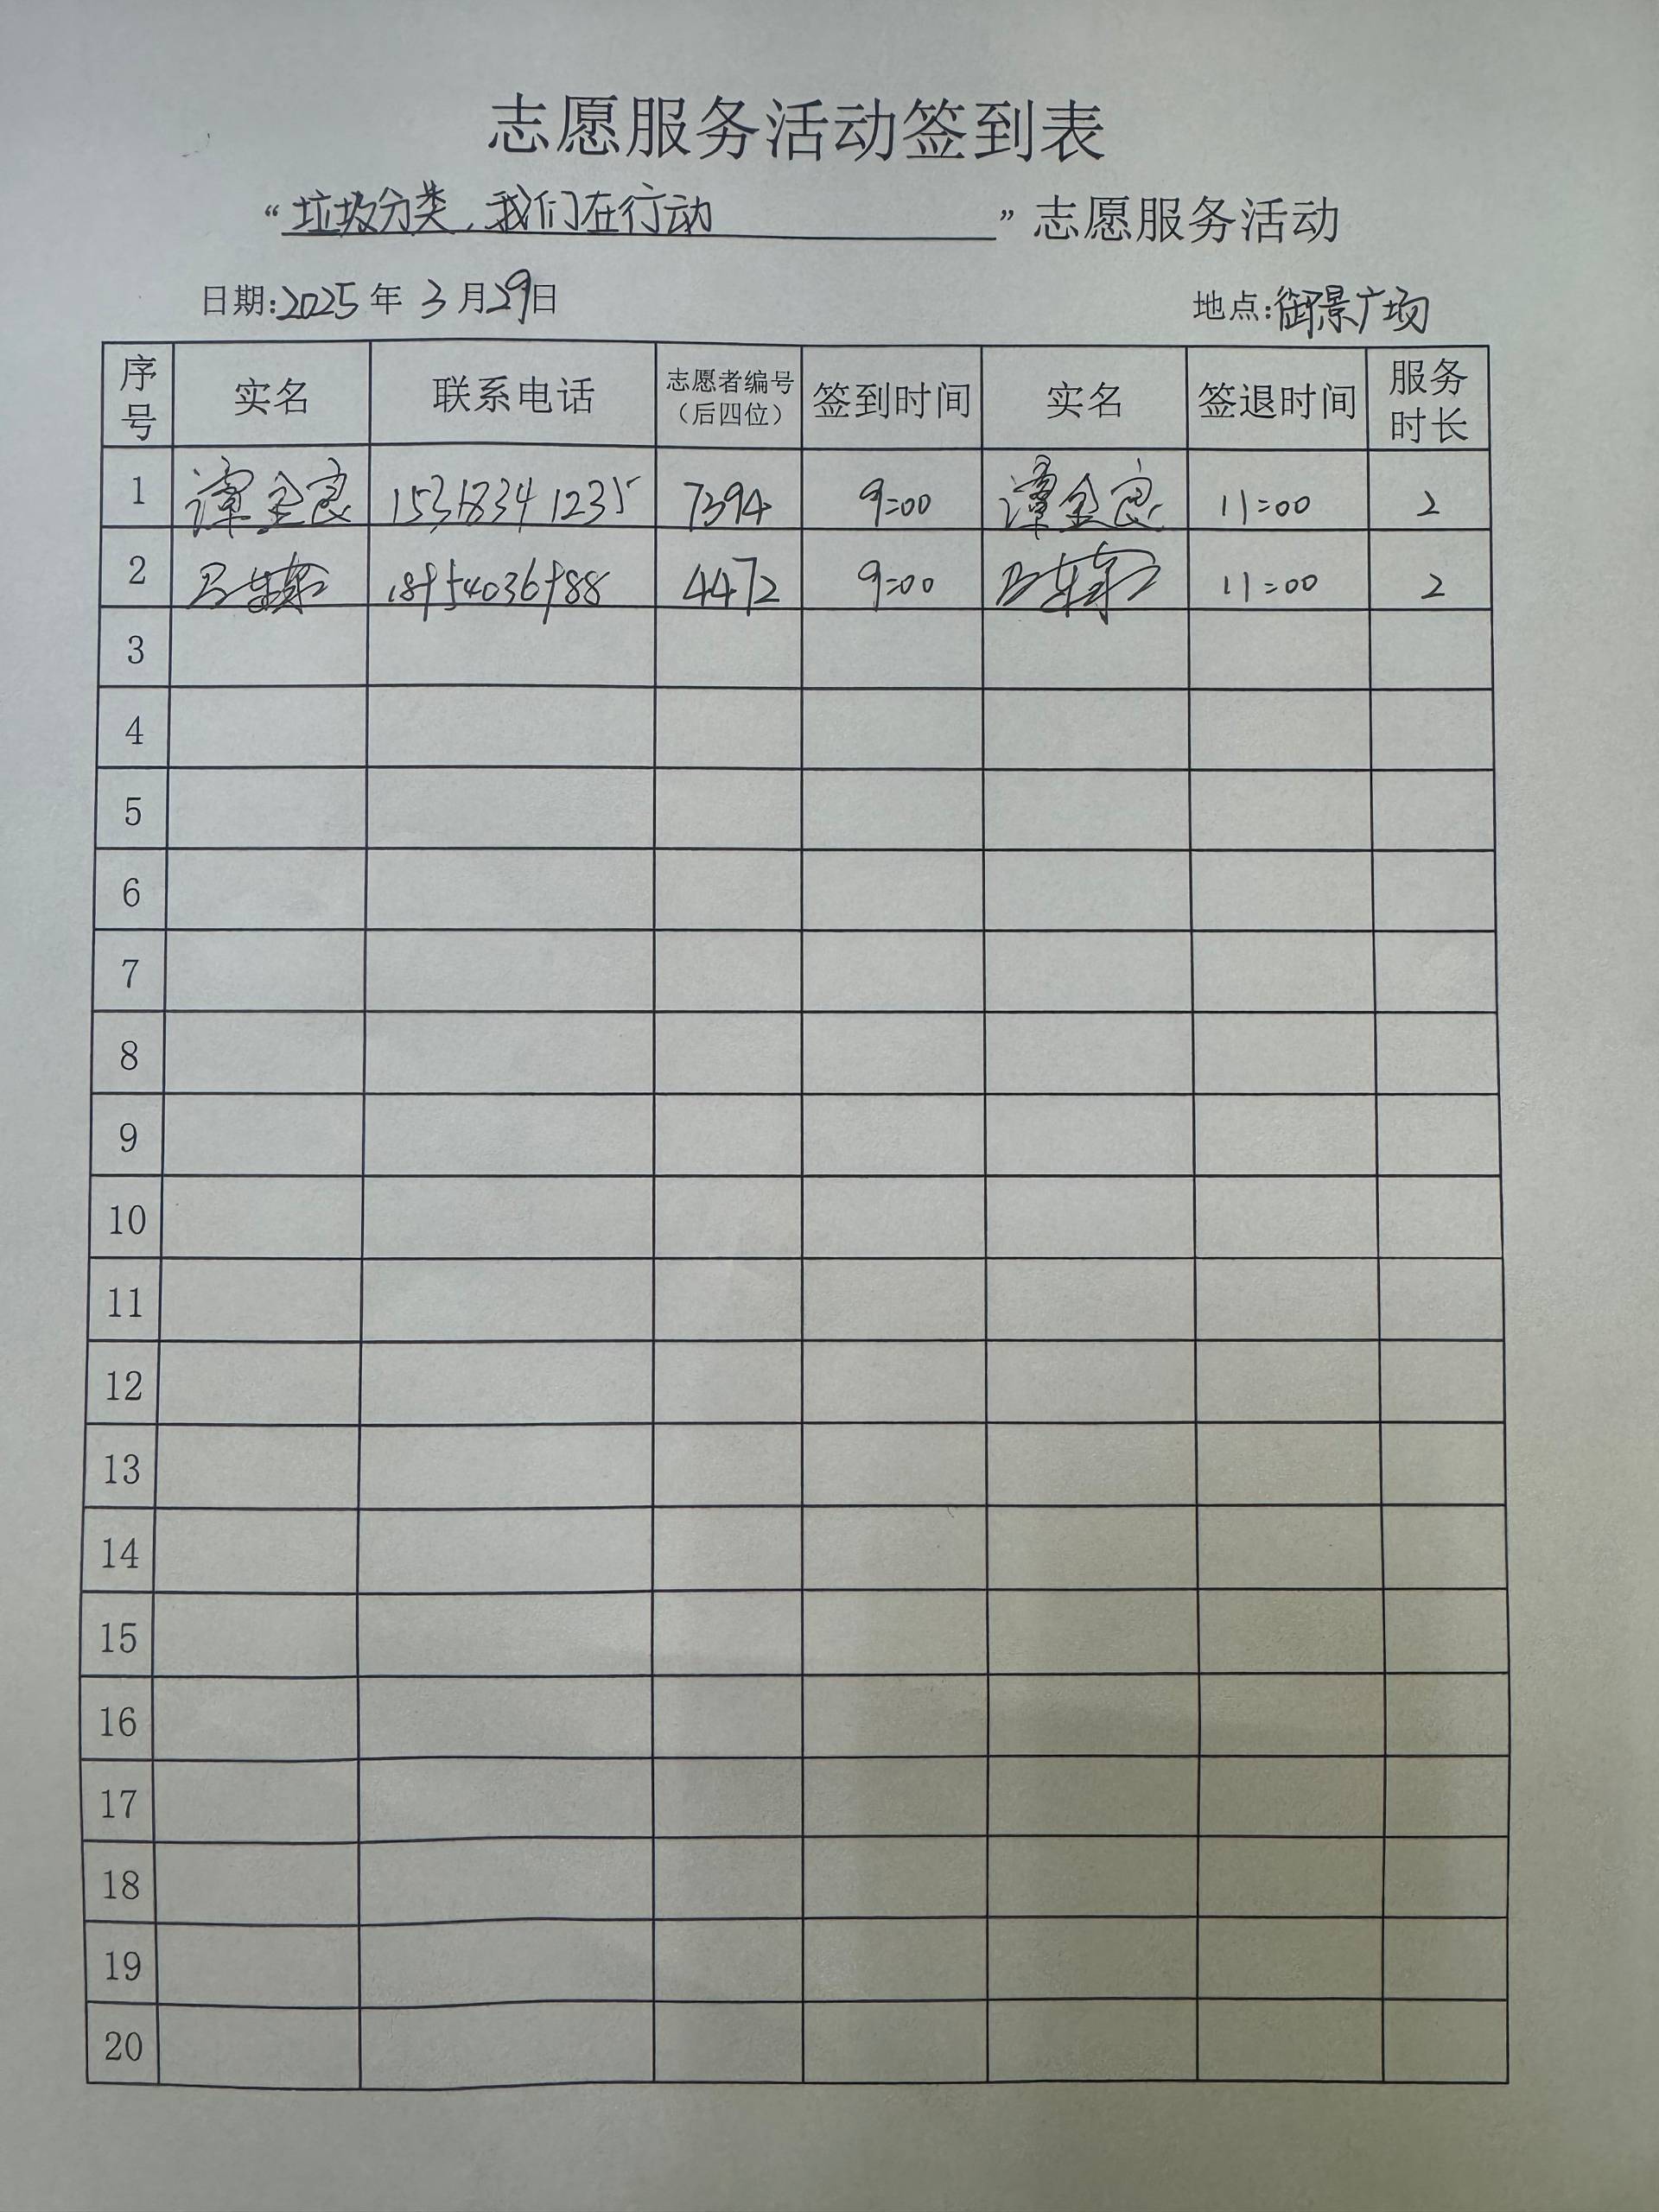 志愿服务活动签到表
“垃圾分类，我们在行动”志愿服务活动
日期:2025年3月29日 地点:御景广场
序号 实名 联系电话 志愿者编号（后四位） 签到时间 实名 签退时间 服务时长
1 谭金良 15318341235 7394 9:00 谭金良 11:00 2
2 18954036988 4472 9:00 11:00 2
3
4
5
6
7
8
9
10
11
12
13
14
15
16
17
18
19
20